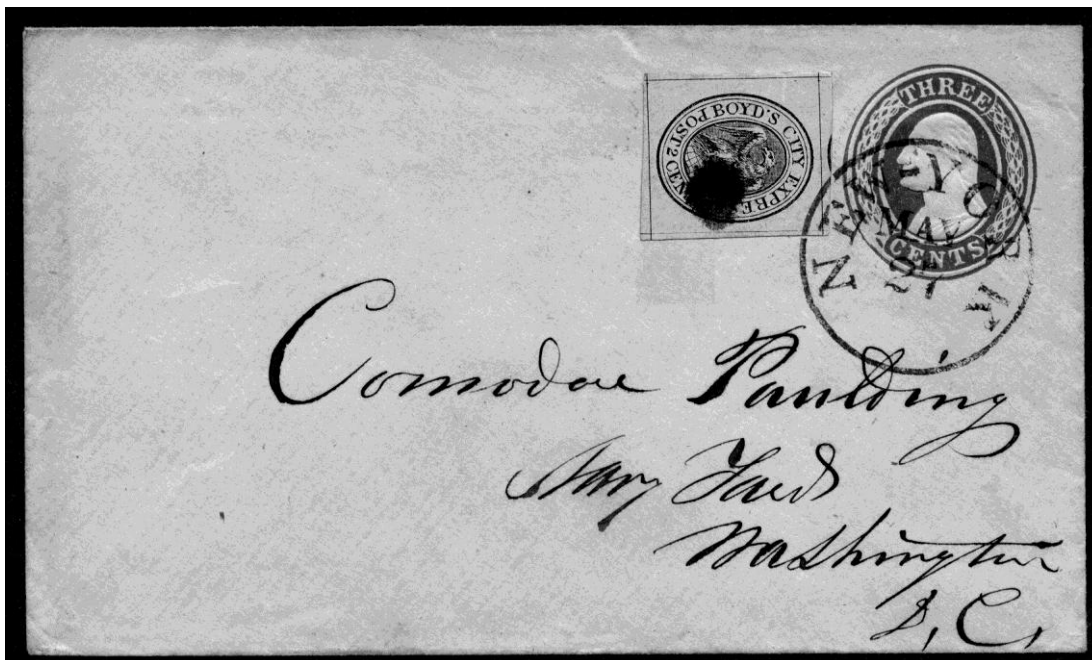 BOYD'S CITY EXPRESS POST 2 CEN
THREE
CENTS
NEW-YORK
MAY
Comodore Paulding
Navy Yard
Washington
D, C,